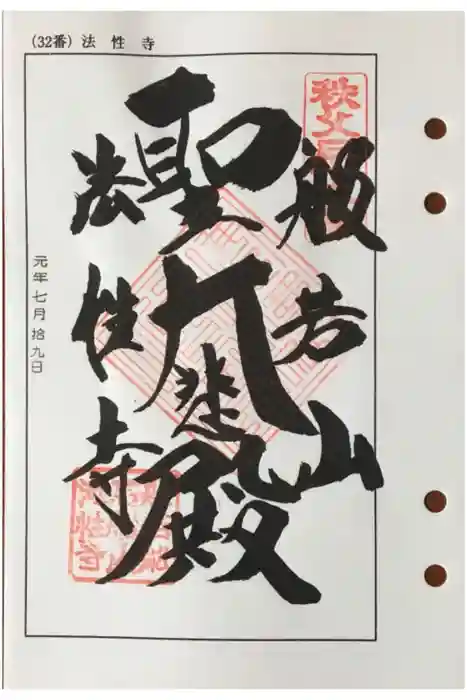 (32番) 法性寺
秩父
般若山
聖大悲殿
法性寺
元年七月拾九日